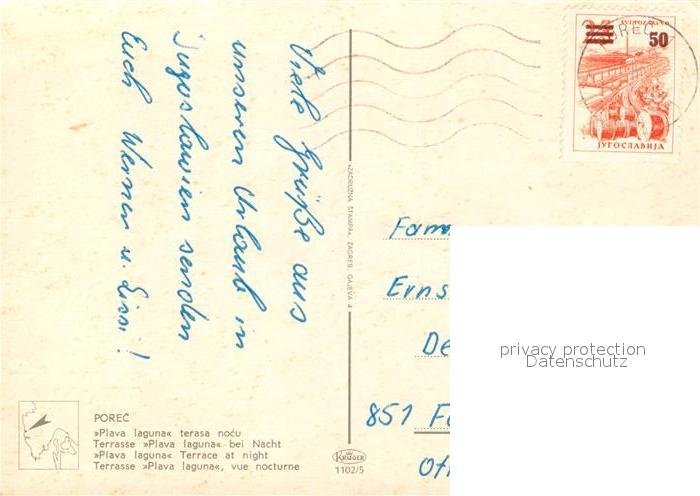 Viele Grüße aus
unserem Urlaub in
Jugoslawien senden
Euch Werner u. Lissi!
»ZADRUŽNA ŠTAMPA«, ZAGREB, GAJEVA 4
POREČ
50
JUGOSLAVIJA
Fam.
Erns
De
851 F
privacy protection
Datenschutz
POREČ
»Plava laguna« terasa noću
Terrasse »Plava laguna« bei Nacht
»Plava laguna« Terrace at night
Terrasse »Plava laguna«, vue nocturne
KRÜGER
1102/5